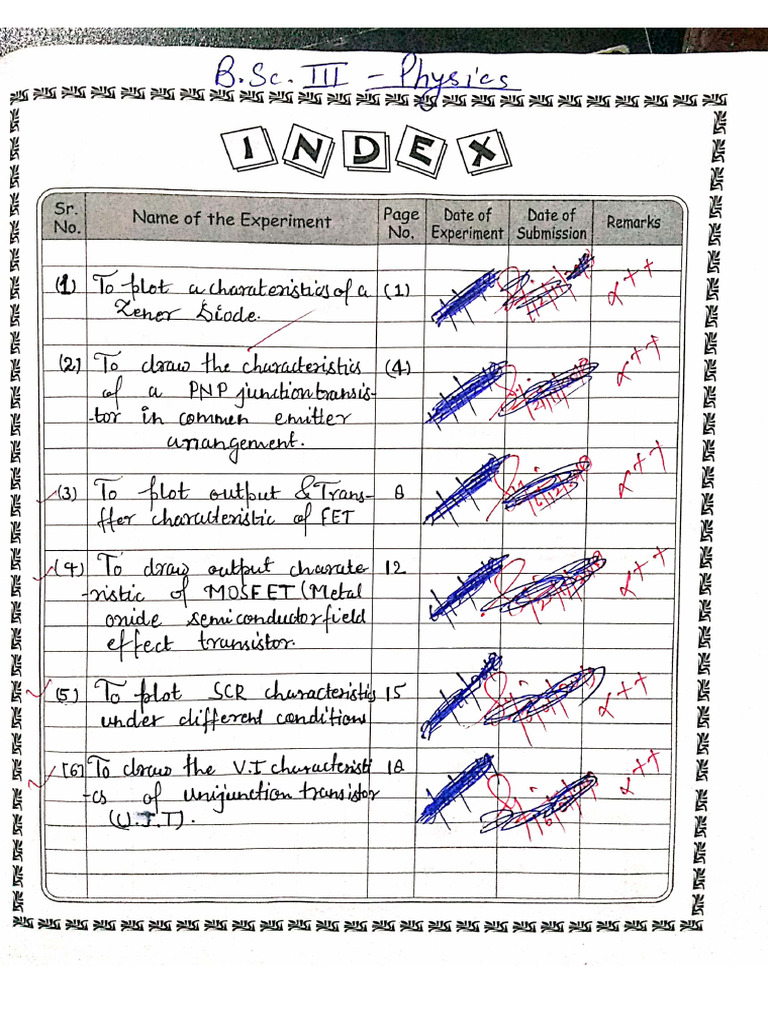 B.Sc. III - Physics
INDEX
Sr. No. Name of the Experiment Page No. Date of Experiment Date of Submission Remarks
(1) To plot a charateristics of a (1) α++
Zener Diode.
(2) To draw the characteristics (4) α++
of a PNP junction transis-
-tor in common emitter
arrangement.
(3) To plot output & Trans- 8 α++
ffer characteristic of FET
(4) To draw output charate- 12 α++
-ristic of MOSFET (Metal
oxide semiconductor field
effect transistor.
(5) To plot SCR characteristics 15 α++
under different conditions
[6] To draw the V.I characteristi 18 α++
-cs of unijunction transistor
(U.J.T).